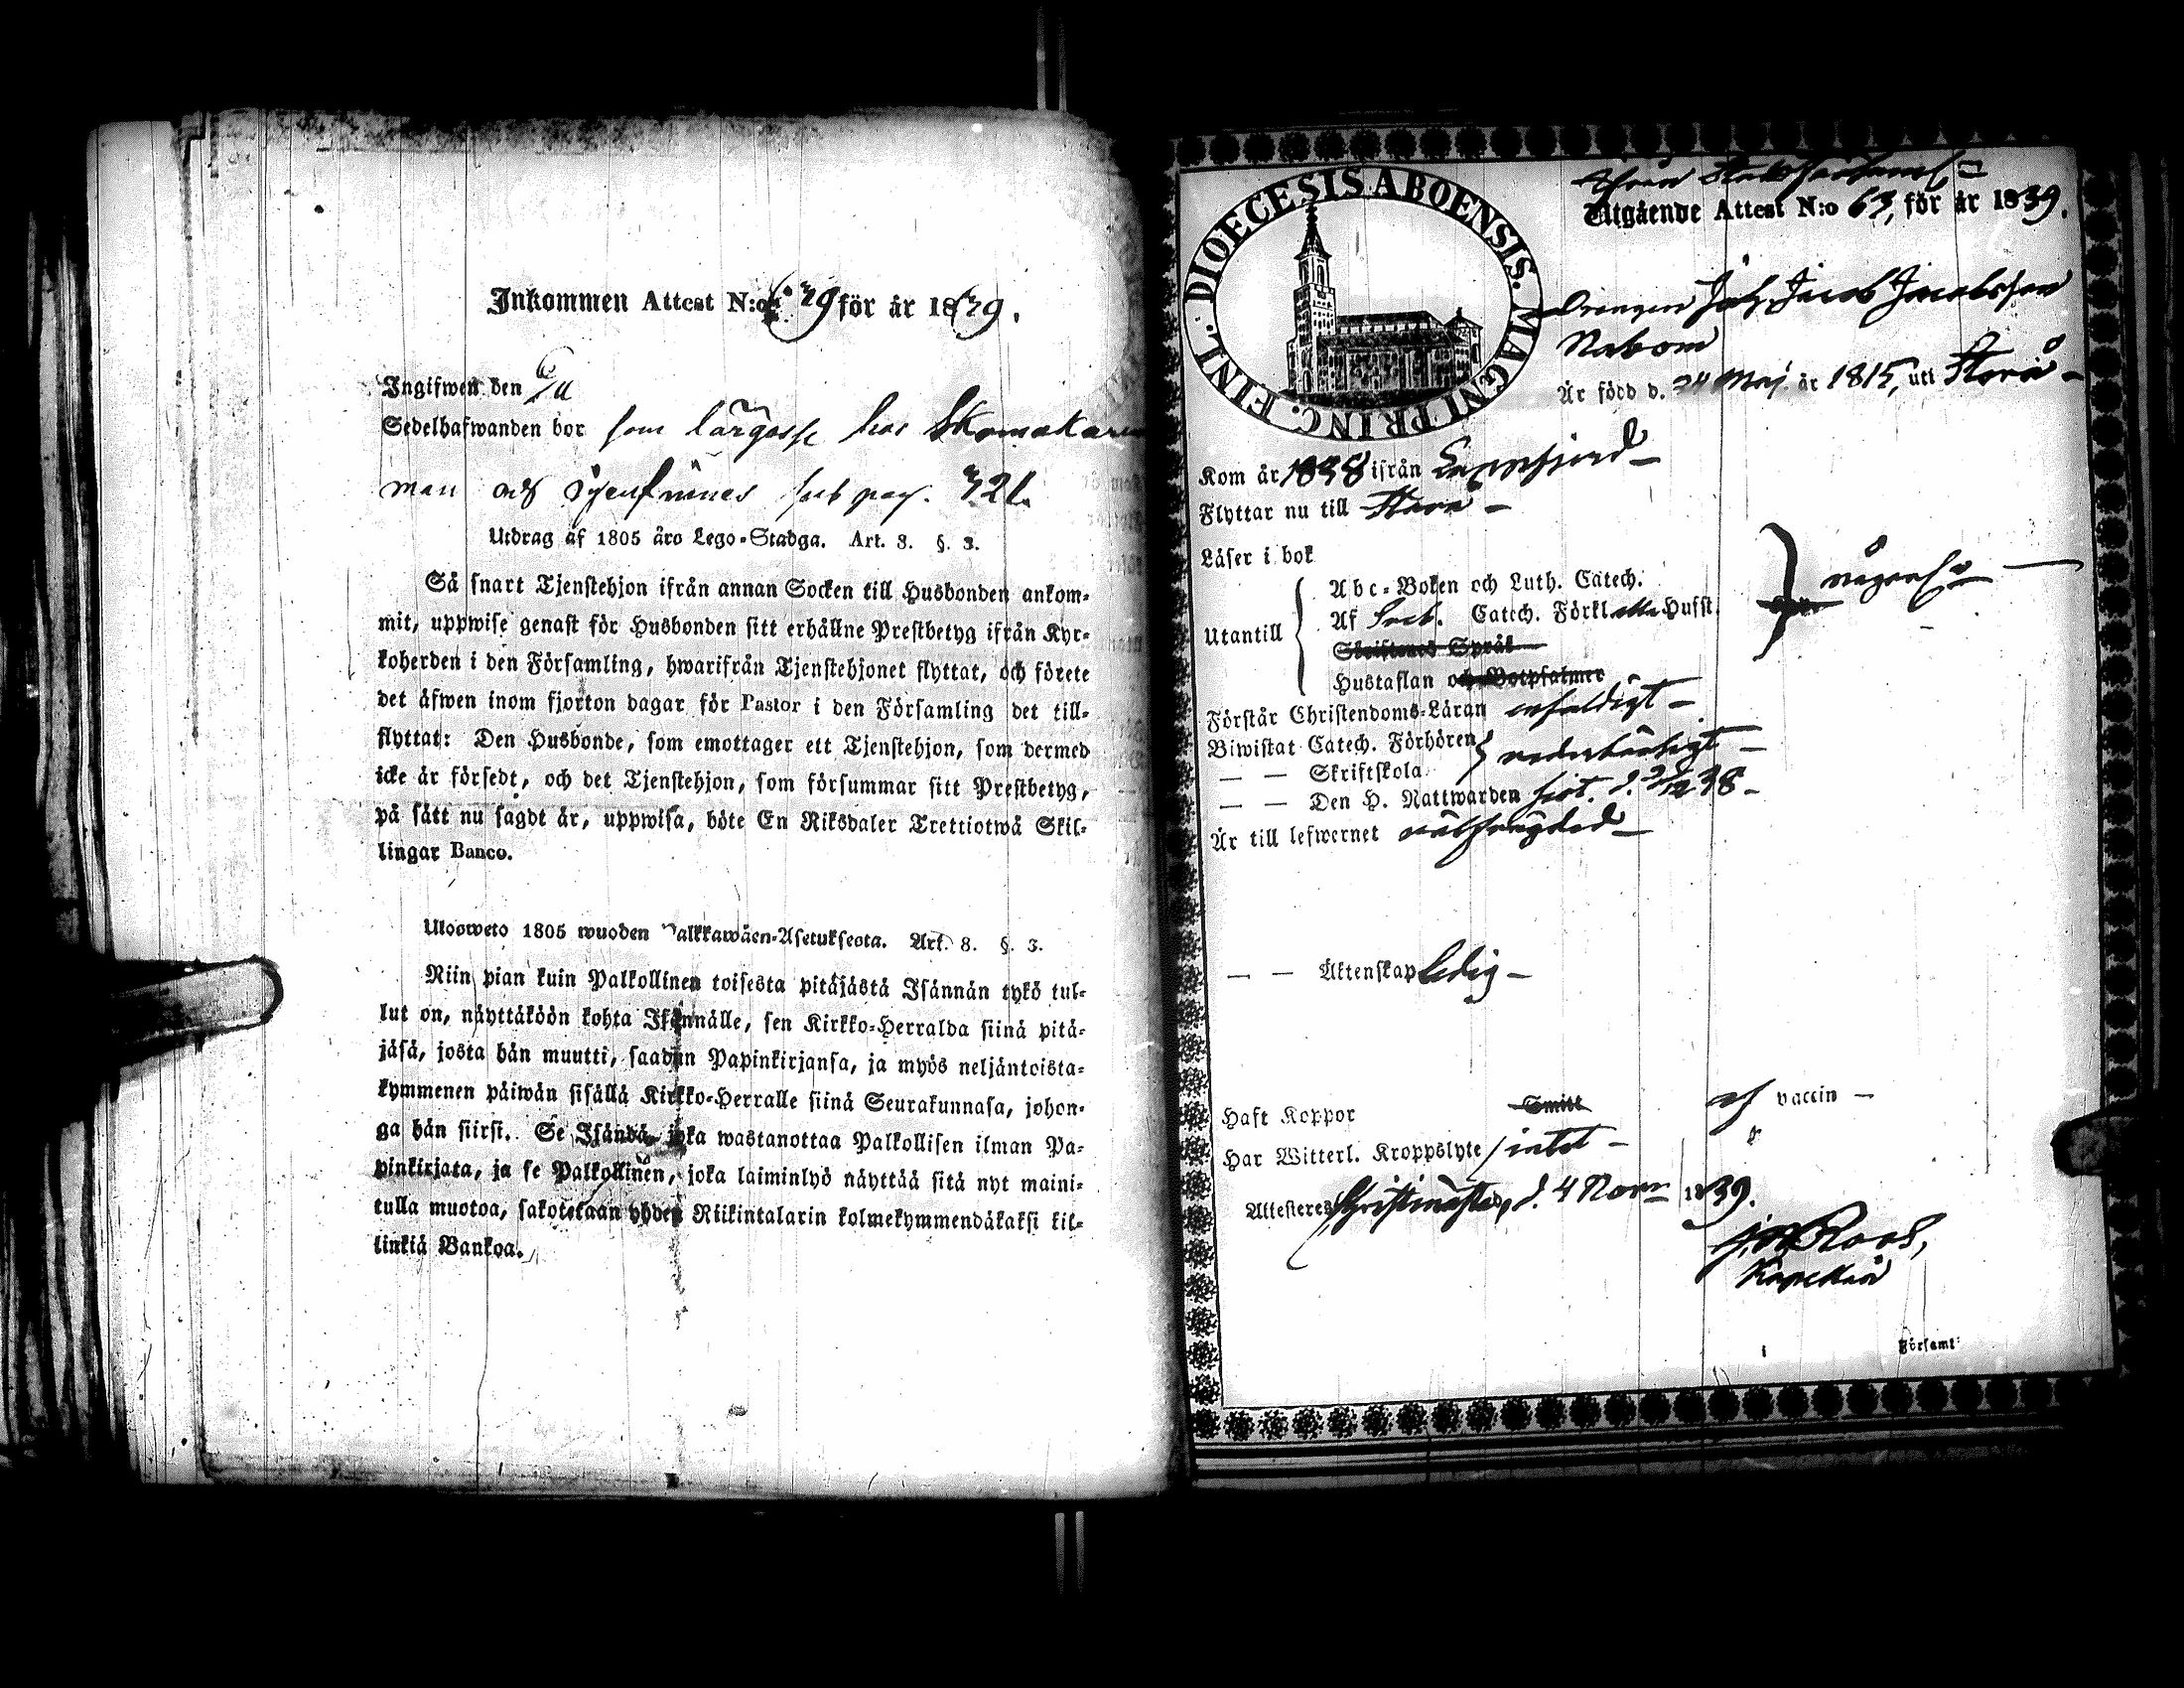 Inkommen Attest N:o 39 för år 1839.
Ingifwen den 6/11
Sedelhafwanden bor som lärgosse hos Skomakaren
man och pag. 321.
Utdrag af 1805 åro Lego-Stadga. Art. 8. §. 3.
Så snart Tjenstehjon ifrån annan Socken till Husbonden ankom-
mit, uppwise genast för Husbonden sitt erhållne Prestbetyg ifrån Kyr-
koherden i den Församling, hwarifrån Tjenstehjonet flyttat, och förete
det äfwen inom fjorton dagar för Pastor i den Församling det till-
flyttat: Den Husbonde, som emottager ett Tjenstehjon, som dermed
icke är försedt, och det Tjenstehjon, som försummar sitt Prestbetyg,
på sätt nu sagdt är, uppwisa, böte En Riksdaler Trettiotwå Skil-
lingar Banco.
Ulosweto 1805 wuoden Palkkawäen-Asetuksesta. Art. 8. §. 3.
Niin pian kuin Palkollinen toisesta pitäjästä Isännän tykö tul-
lut on, näyttäköön kohta Isännälle, sen Kirkko-Herralda siinä pitä-
jäsä, josta hän muutti, saadun Papinkirjansa, ja myös neljäntoista-
kymmenen päiwän sisällä Kirkko-Herralle siinä Seurakunnasa, johon-
ga hän siirsi. Se Isändä, joka wastanottaa Palkollisen ilman Pa-
pinkirjata, ja se Palkollinen, joka laiminlyö näyttää sitä nyt maini-
tulla muotoa, sakotetaan yhden Riikintalarin kolmekymmendäkaksi kil-
linkiä Bankoa.
DIOECESIS ABOENSIS. MAGNI PRINC. FINL.
Ifrån
Utgående Attest N:o 63, för år 1839.
Drengen Joh. Jacob Jacobsson
Nabom
Är född d. 24 Maj år 1815, uti Storå
Kom år 1838 ifrån Lappfjerd
Flyttar nu till Storå
Läser i bok
Abc-Boken och Luth. Catech.
någorl.
Utantill
Af Sveb. Catech. Förkl. Husst.
Skriftenes Språk
Hustaflan och Botpsalmer
Förstår Christendoms-Läran enfaldigt
Biwistat Catech. Förhören
vederbörligt
— — Skriftskola
— — Den H. Nattwarden sist. d. 38
Är till lefwernet välfrägdad
— — Äktenskap ledig
Haft Koppor Smitt af vaccin
Har Witterl. Kroppslyte intet
Attesteres Christinestad, d. 4 Novr 1839.
Roos,
Kapellan
Församl: